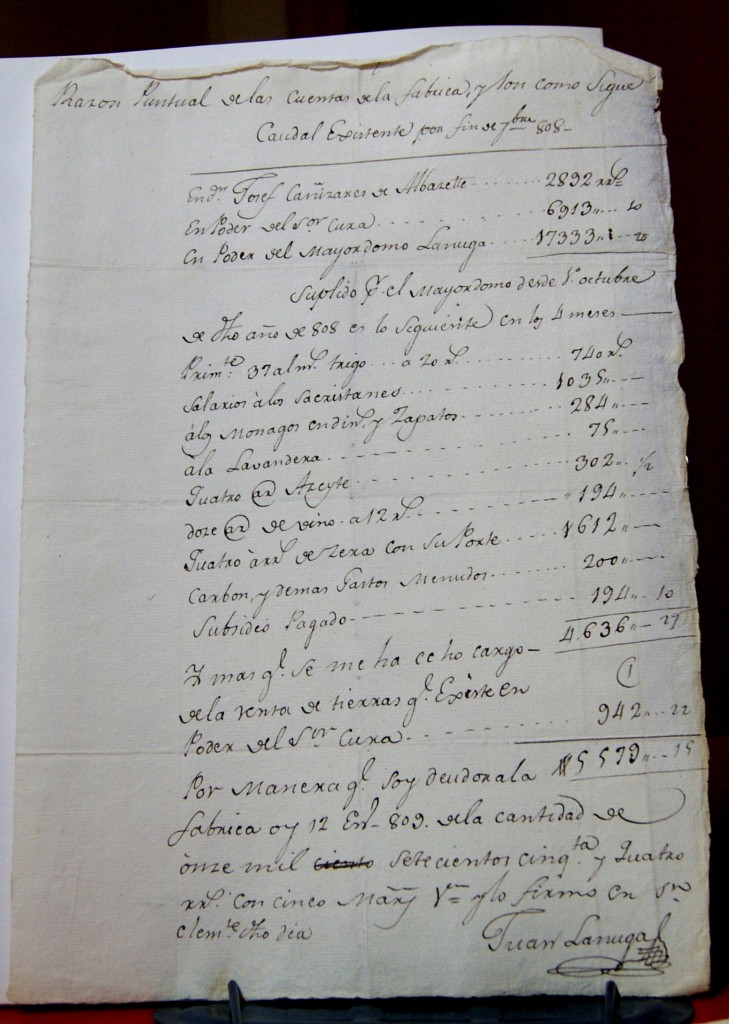 Razon Puntual de las cuentas de la fabrica, y son como Sigue
Caudal Existente por fin de 7bre 808-
En dn Josef Cañizares de Albazette ........ 2892 rrs
En Poder del Sor Cura ........ 6913,, .. 10
En Poder del Mayordomo Lanuga .... 17333,, .. 20
Suplido pr el Mayordomo desde 1o octubre
de dho año de 808 es lo Siguiente en los 4 meses
Primte 37 alms trigo ... a 20 rs ........ 740 rs
Salarios à los Sacristanes ........ 1035,,
à los Monagos en dino y Zapatos ........ 284,,
à la Lavandera ........ 75,,
Quatro @ Azeyte ........ 302,, 1/2
doze @ de vino a 12 rs ........ 194,,
Quatro àrrs de Zera con su Porte ..... 1612,,
Carbon, y demas Gastos Menudos ........ 200,,
Subsidio Pagado ........ 194,, 10
4.636,, 27
Y mas qe Se me ha echo cargo
de la venta de tierras qe Existe en
Poder del Sor Cura ........ 942,, .. 22
1
5579,, .. 15
Por Manera qe Soy deudor ala
fabrica oy 12 Eno 809. dela cantidad de
onze mil ciento Setecientos cinqta y Quatro
rrs con cinco Mars Vn y lo firmo en Sn
Clemte dho dia
Juan Lanuga